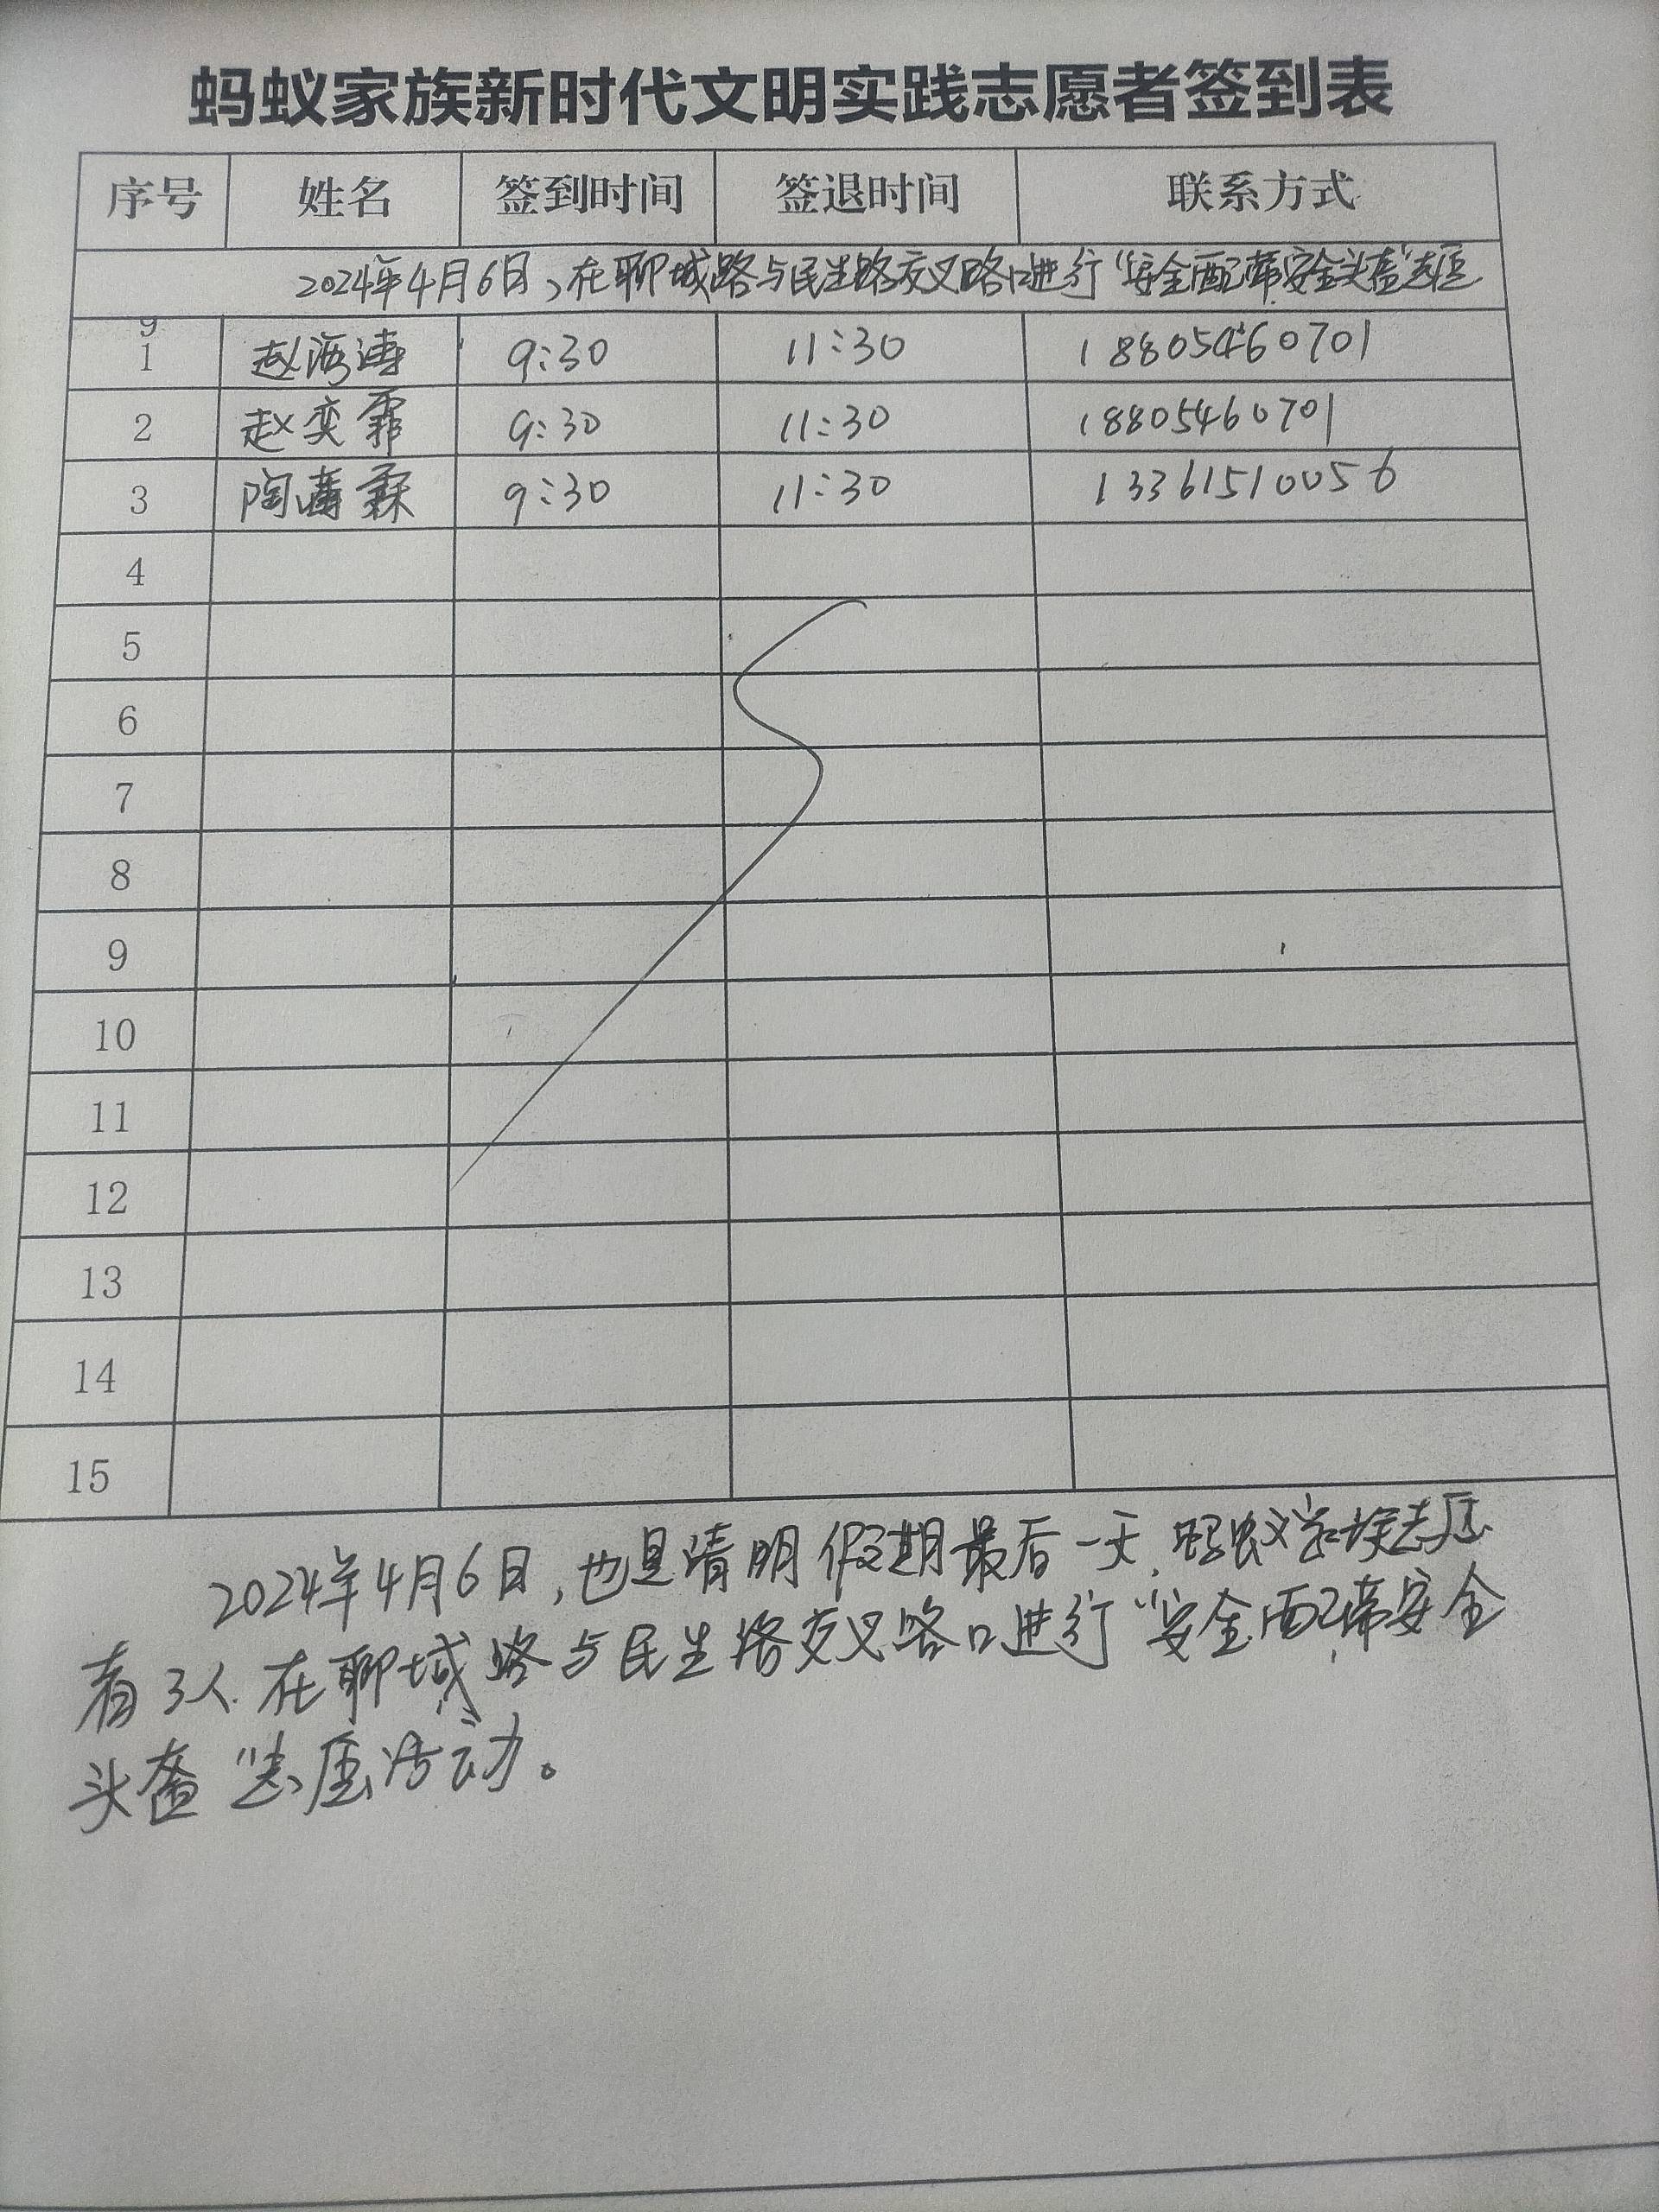 蚂蚁家族新时代文明实践志愿者签到表
序号 姓名 签到时间 签退时间 联系方式
2024年4月6日,在聊城路与民生路交叉路口进行“安全配带安全头盔”志愿
9
1 赵海涛 9:30 11:30 18805460701
2 赵奕霏 9:30 11:30 18805460701
3 陶 霖 9:30 11:30 13361510056
4
5
6
7
8
9
10
11
12
13
14
15
2024年4月6日,也是清明假期最后一天,蚂蚁家族志愿
者3人在聊城路与民生路交叉路口进行“安全配带安全
头盔”志愿活动。